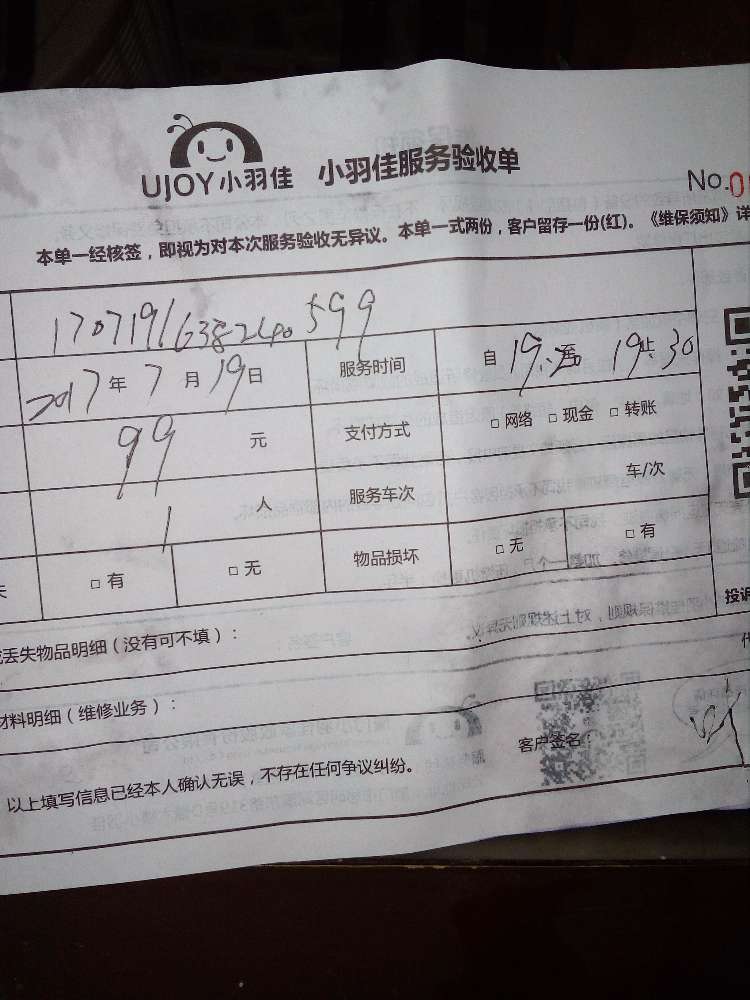 UJOY小羽佳 小羽佳服务验收单
No.0
本单一经核签，即视为对本次服务验收无异议。本单一式两份，客户留存一份(红)。《维保须知》详
170719163824059 9
2017年7月19日 服务时间 自19:20至19止30
99元 支付方式 □网络 □现金 □转账
1人 服务车次 车/次
□有 □无 物品损坏 □无 □有
投诉
丢失物品明细（没有可不填）：
材料明细（维修业务）：
客户签名：
以上填写信息已经本人确认无误，不存在任何争议纠纷。